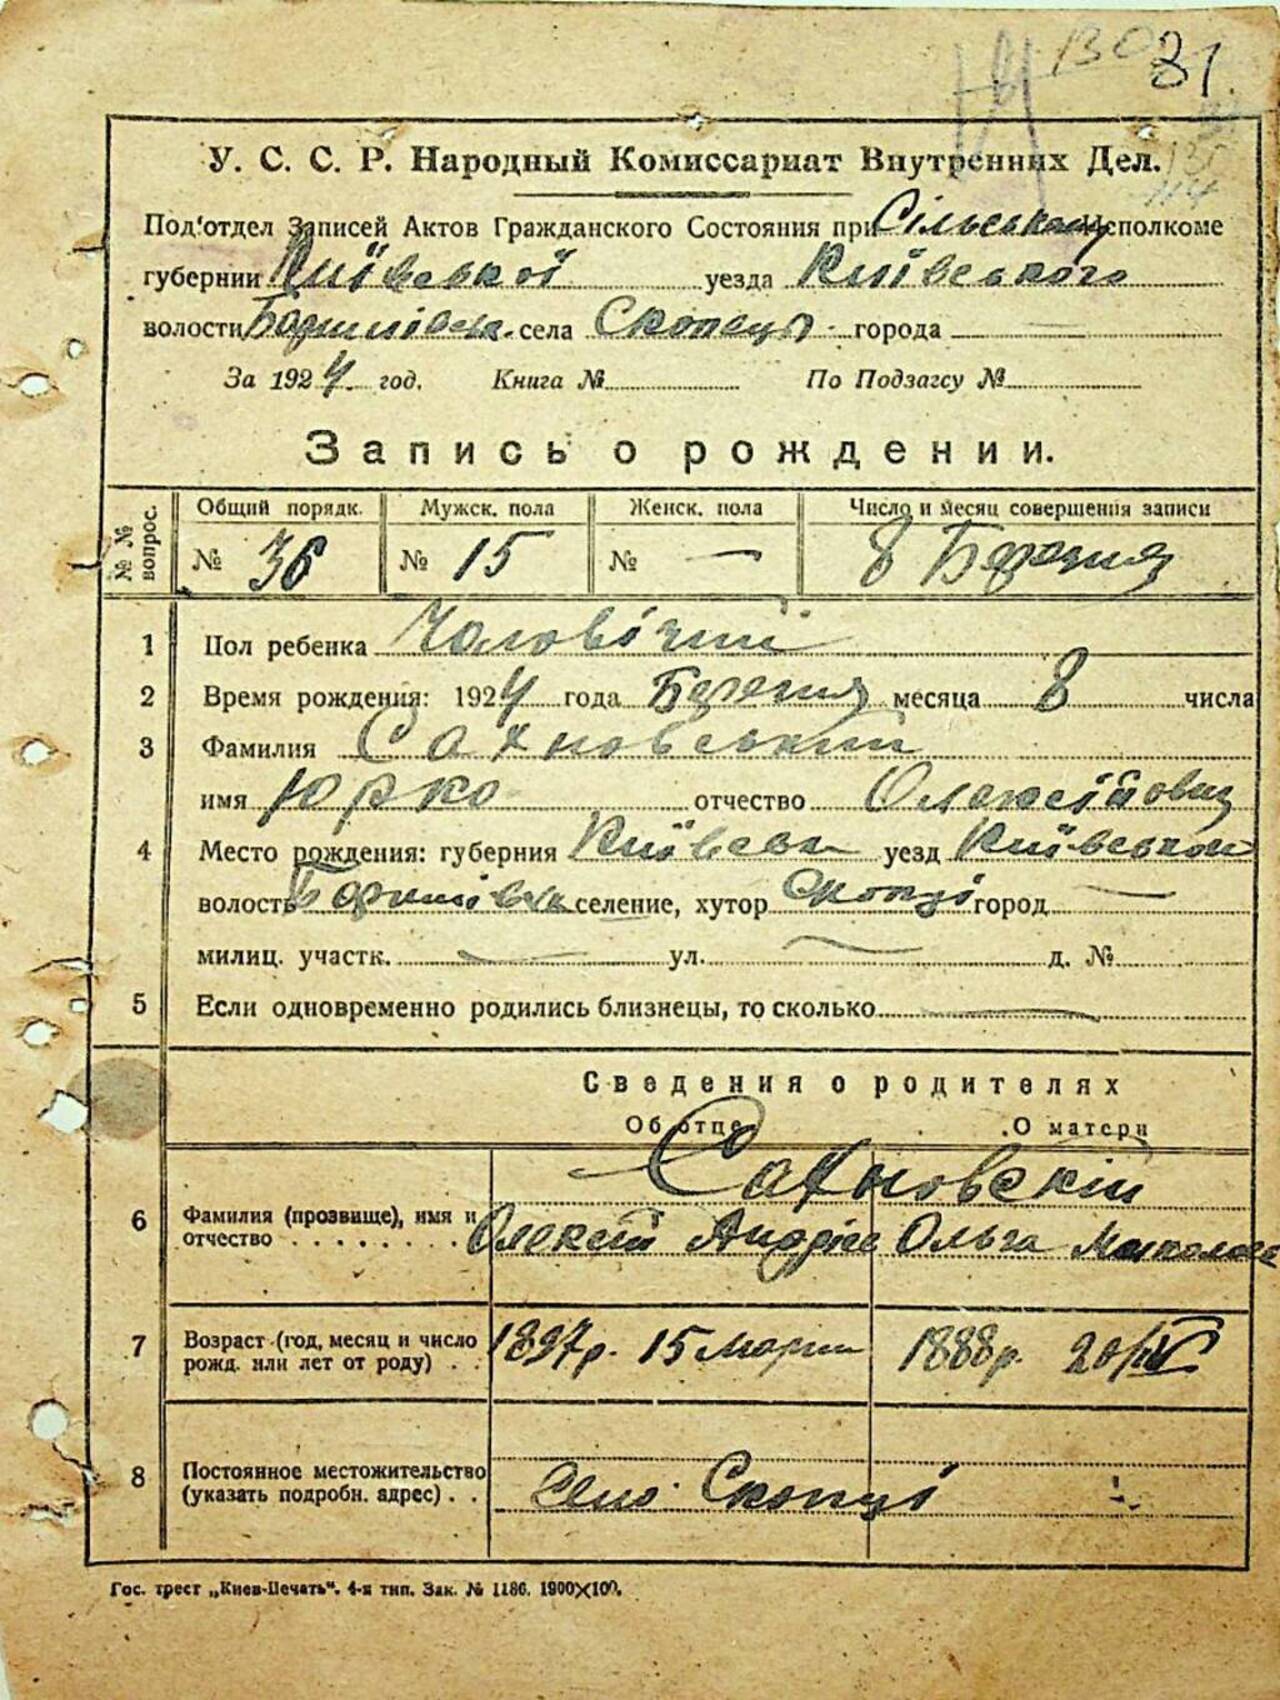 130 31
У. С. С. Р. Народный Комиссариат Внутренних Дел.
Под'отдел Записей Актов Гражданского Состояния при Сільськом Исполкоме
губернии Київської уезда Київського
волости села Скопцы города —
За 1924 год. Книга № По Подзагсу №
Запись о рождении.
№ № вопрос. Общий порядк. Мужск. пола Женск. пола Число и месяц совершения записи
№ 36 № 15 № — 8 Березня
1 Пол ребенка Чоловічий
2 Время рождения: 1924 года Березня месяца 8 числа
3 Фамилия Сахновський
имя Юрко отчество Олексійович
4 Место рождения: губерния Київськ уезд Київський
волость селение, хутор Скопці город —
милиц. участк. — ул. — д. №
5 Если одновременно родились близнецы, то сколько —
Сведения о родителях
Об отце О матери
Сахновскій
6 Фамилия (прозвище), имя и отчество Олексій Андріев Ольга
7 Возраст (год, месяц и число рожд. или лет от роду) 1897р. 15 марта 1888р. 20/IV
8 Постоянное местожительство (указать подробн. адрес) Село Скопці
Гос. трест „Киев-Печать". 4-я тип. Зак. № 1186. 1900×100.